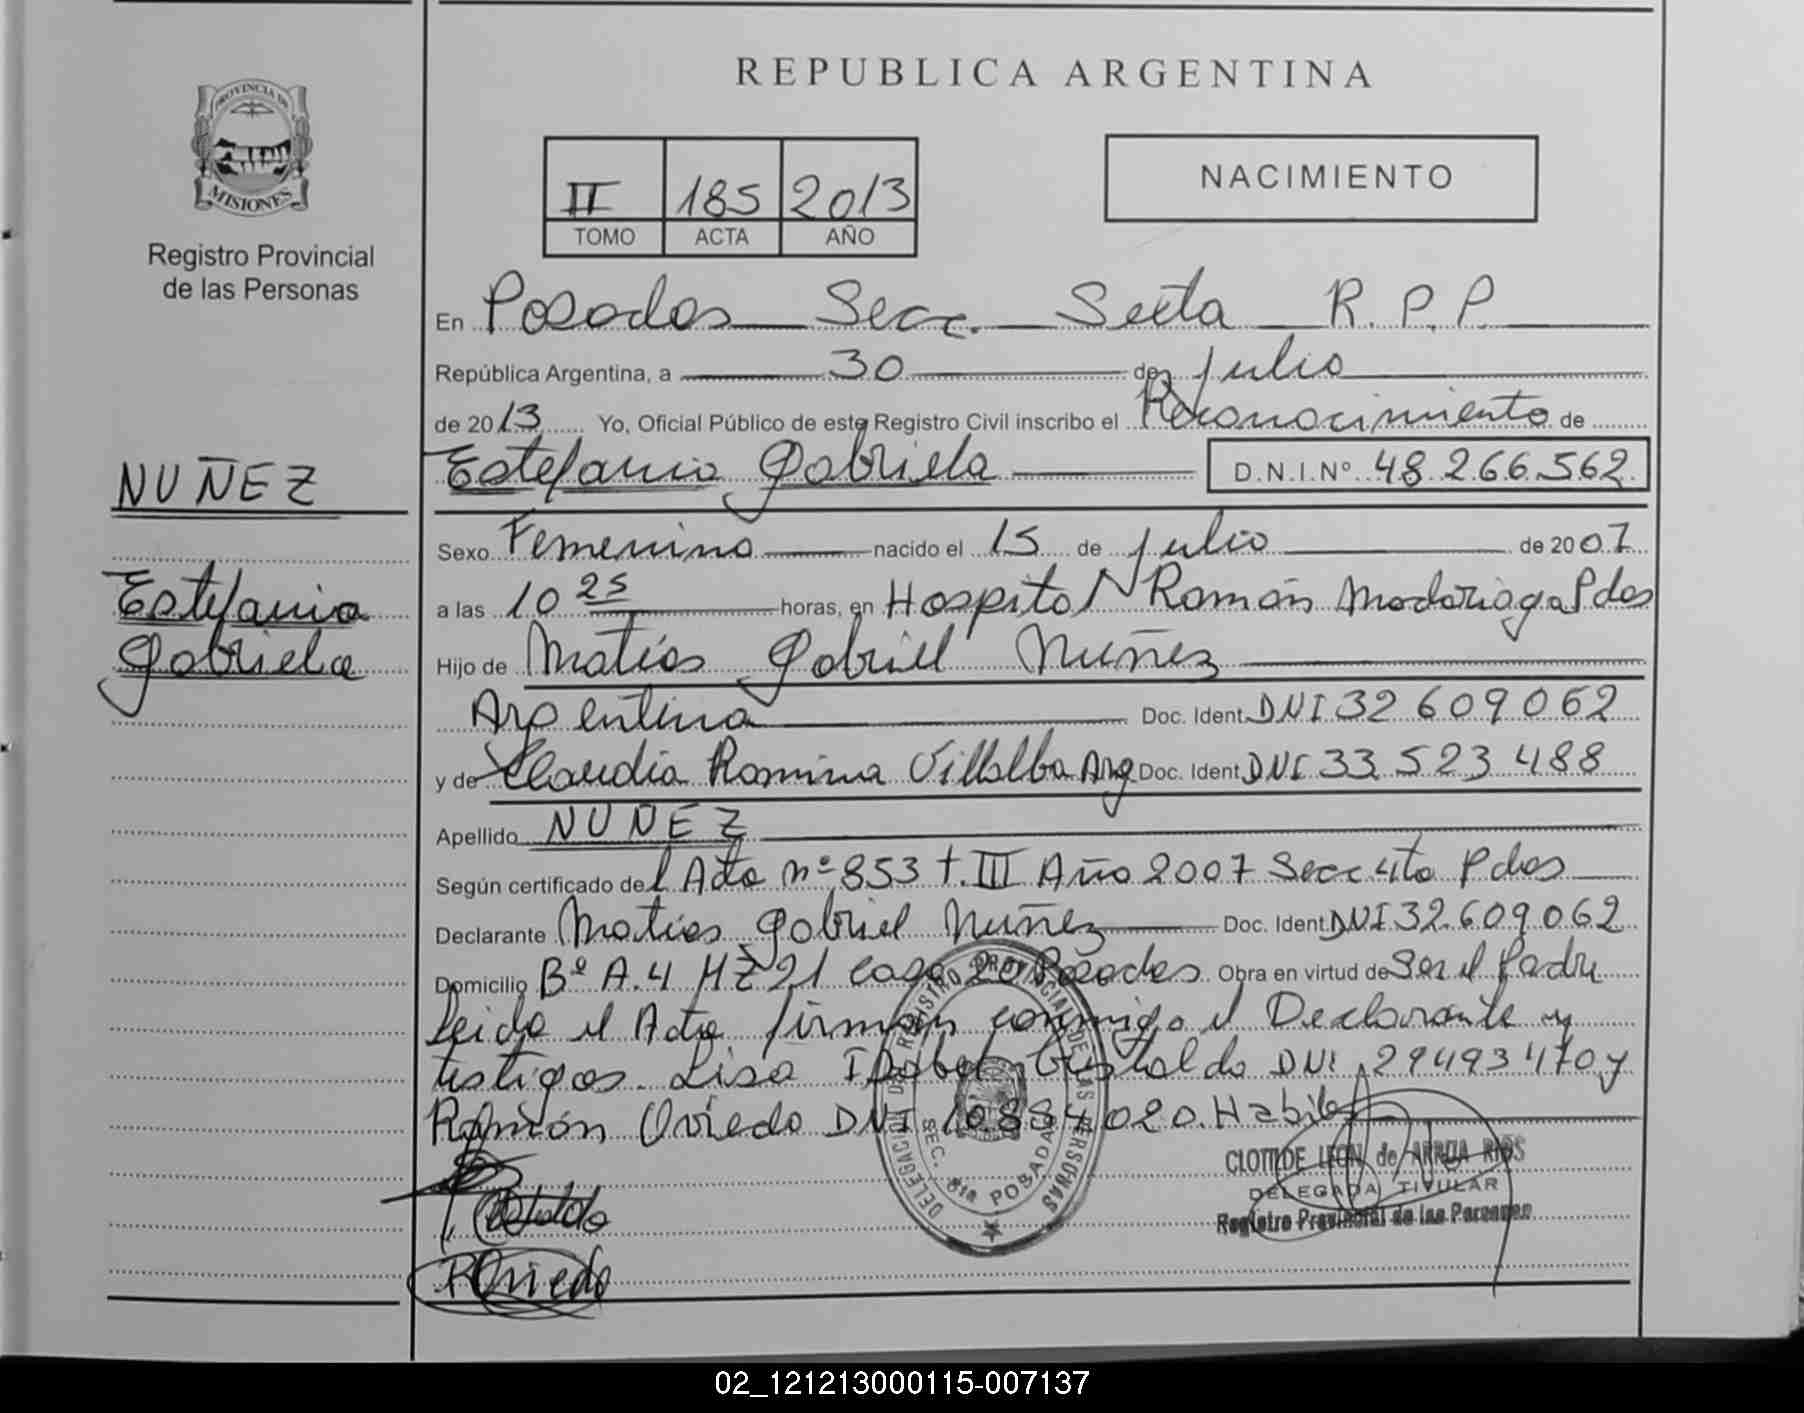 PROVINCIA DE
MISIONES
Registro Provincial
de las Personas
NUÑEZ
Estefania
Gabriela
REPUBLICA ARGENTINA
II 185 2013
TOMO ACTA AÑO
NACIMIENTO
En Posadas Secc. Sexta R.P.P.
República Argentina, a 30 de julio
de 2013 Yo, Oficial Público de este Registro Civil inscribo el Reconocimiento de
Estefania Gabriela D.N.I.Nº 48.266.562
Sexo Femenino nacido el 15 de julio de 2007
a las 10 25 horas, en Hospital Ramón Madariaga Pdas
Hijo de Matías Gabriel Nuñez
Argentina Doc. Ident. DNI 32 609 062
y de Claudia Romina Villalba Arg Doc. Ident DNI 33 523 488
Apellido NUÑEZ
Según certificado del Acta nº 853 t. III Año 2007 Secc 4ta Pdas
Declarante Matías Gabriel Nuñez Doc. Ident. DNI 32.609.062
Domicilio Bº A.4 MZ 21 casa 20 Posadas Obra en virtud de Ser el Padre
leida el Acta firman conmigo el Declarante y
testigos. Lisa Isabel Gustaldo DNI 29493470 y
Ramón Oviedo DNI 10.884.020. Habiles
DELEGACION DEL REGISTRO PROVINCIAL DE LAS PERSONAS
SEC. 6ta POSADAS
CLOTILDE LEON de ARRUA RIOS
DELEGADA TITULAR
Registro Provincial de las Personas
ROviedo
02_121213000115-007137